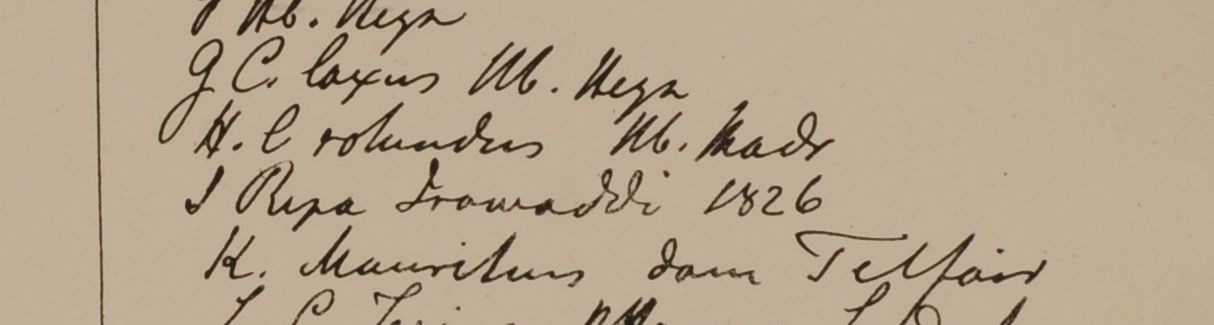 Hb. Heyn
G C. laxus Hb. Heyn
H. C rotundus Hb. Madr
I Ripa Irawaddi 1826
K. Mauritius dom Telfair